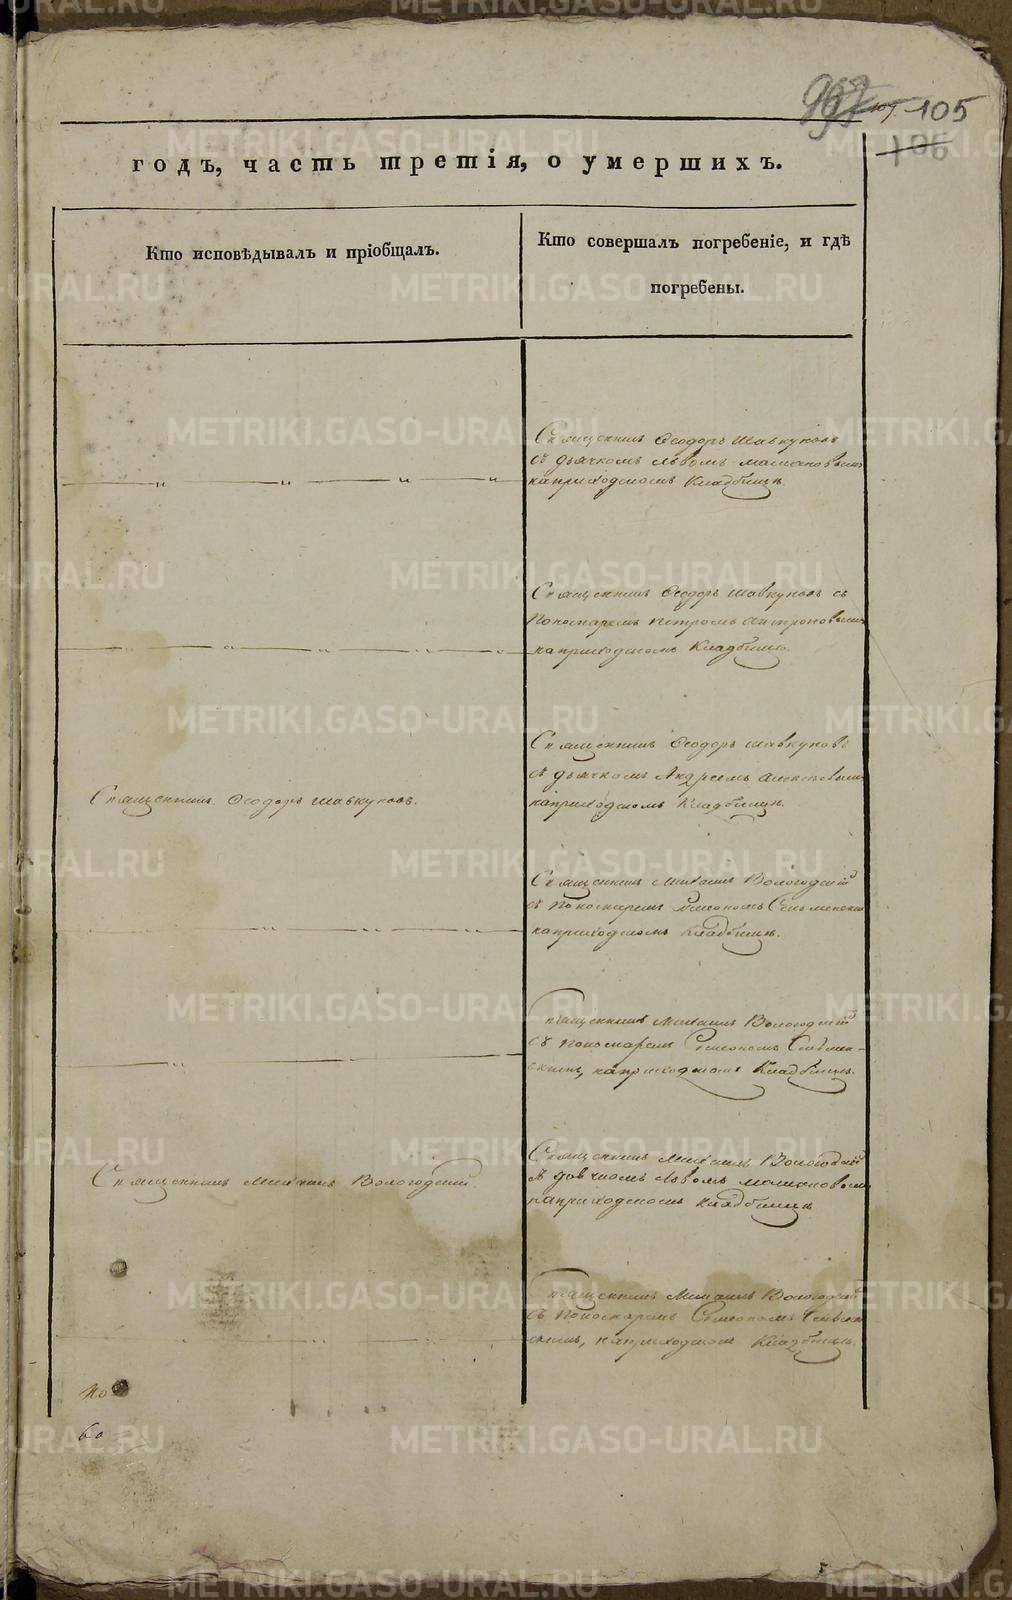 105
106
годъ, часть третія, о умершихъ.
Кто исповѣдывалъ и пріобщалъ.
Кто совершалъ погребеніе, и гдѣ
погребены.
Священникъ Ѳеодоръ Шавкуновъ
съ дьячкомъ Львомъ
на приходскомъ Кладбищѣ.
Священникъ Ѳеодоръ Шавкуновъ съ
Пономаремъ Петромъ Антроповымъ
на приходскомъ Кладбищѣ.
Священникъ Ѳеодоръ Шавкуновъ.
Священникъ Ѳеодоръ Шавкуновъ
съ дьячкомъ Андреемъ
на приходскомъ Кладбищѣ.
Священникъ Михаилъ Вологодскій
съ Пономаремъ Симеономъ
на приходскомъ Кладбищѣ.
Священникъ Михаилъ Вологодскій
съ Пономаремъ Симеономъ
на приходскомъ Кладбищѣ.
Священникъ Михаилъ Вологодскій.
Священникъ Михаилъ Вологодскій
съ дьячкомъ Львомъ
на приходскомъ Кладбищѣ
Священникъ Михаилъ Вологодскій
съ Пономаремъ Симеономъ
на приходскомъ Кладбищѣ.
По
METRIKI.GASO-URAL.RU